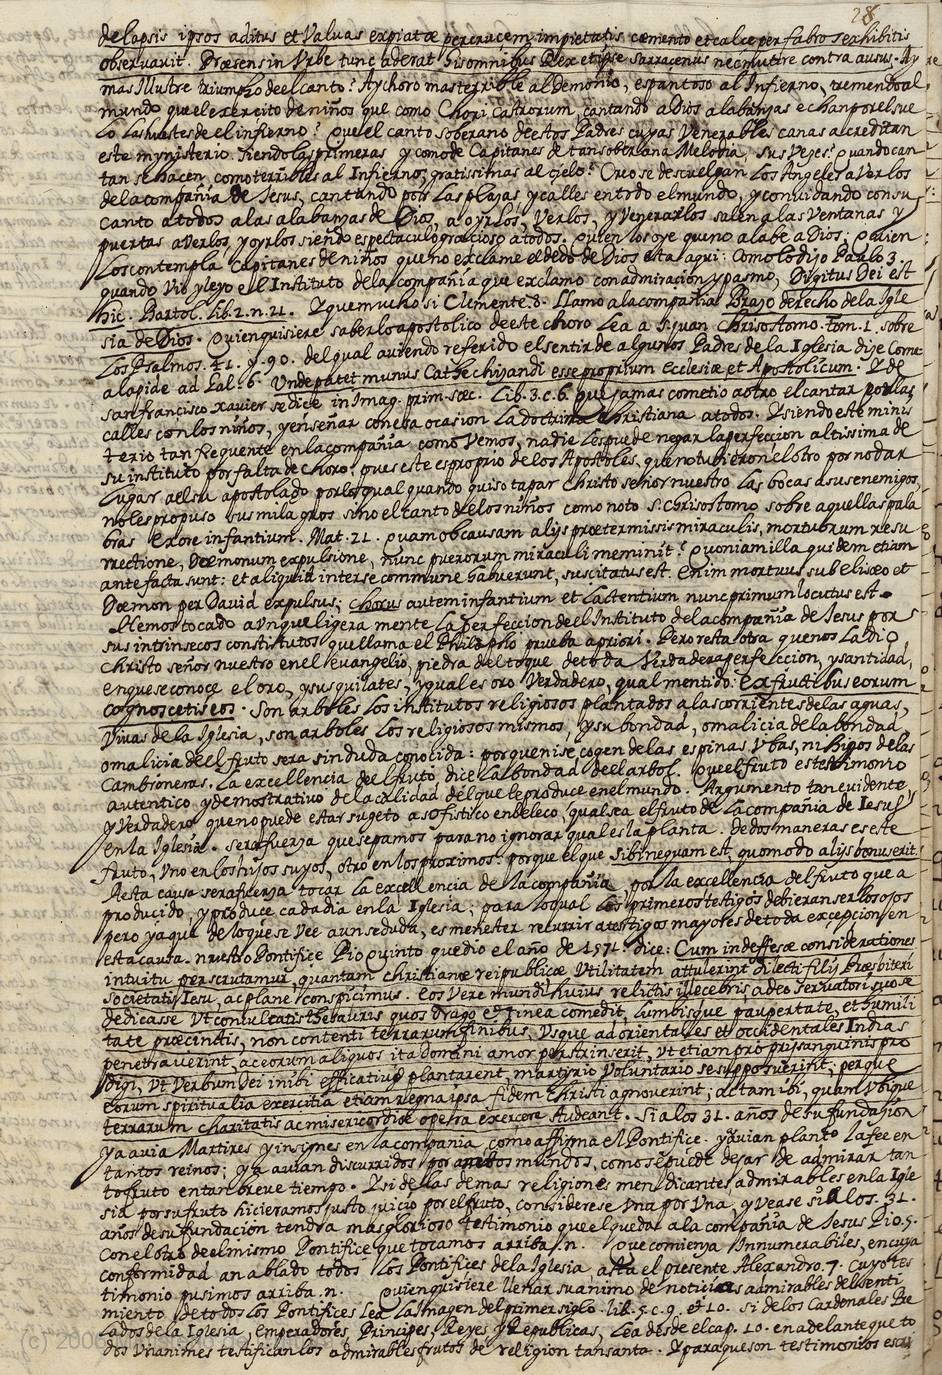 28
delapsis ipsos aditus et Valvas expiatæ per crucem impietatis cæmento et calce per fabros exhibitis
observavit. Præsens in Urbe tunc aderat his omnibus Rex et ipse sarracenus nec mutire contra ausus. Ay
mas Illustre triumpho de el canto? Ay choro mas terrible al Demonio, espantoso al Infierno, tremendo al
mundo que el exercito de niños que como Chori Castrorum, cantando a Dios alabanzas echan por el sue
lo las huestes de el infierno? Que el canto soberano de estos Padres cuyas Venerables canas acreditan
este mynisterio. siendo las primeras y como de Capitanes de tan soberana Melodia, sus Vezes? quando can
tan se hacen, como terribles al Infierno, gratissimas al çielo? Creo se descuelgan los Angeles a Verlos
de la compañia de Jesus, cantando por las plazas y calles en todo el mundo, y convidando con su
canto a todos a las alabanzas de Dios, a oyrlos, Verlos, y Venerarlos salen a las Ventanas y
puertas a Verlos, y oyrlos siendo espectaculo gratioso a todos. quien los oye que no alabe a Dios; quien
los contempla Capitanes de niños que no exclame el dedo de Dios esta aqui: como lo dijo Paulo 3.
quando Vio y leyo el Instituto de la compañia que exclamo con admiracion y pasmo, Digitus Dei est
hic. Bartol. lib. 2. n. 21. Y que mucho si Clemente 8. llamo a la compañia Brazo derecho de la Igle
sia de Dios. Quien quisiere saber lo apostolico de este choro lea a S. Juan Chrisostomo. tom. 1. sobre
los Psalmos. 41. y. 90. del qual aviendo referido el sentir de algunos Padres de la Iglesia dize Corne
a lapide ad Gal. 6. Unde patet munus Cathechizandi esse proprium Ecclesiæ et Apostolicum. Y de
san francisco Xavier se dice in Imag. prim. sæc. Lib. 3. c. 6. que jamas cometio a otro el cantar por las
calles con los niños, y enseñar con esta ocasion la doctrina christiana a todos. Y siendo este minis
terio tan frequente en la compañia como Vemos, nadie le puede negar la perfeccion altissima de
su instituto por falta de choro, pues este es proprio de los Apostoles, que no tubieron el otro por no dar
lugar a el su apostolado por lo qual quando quiso tapar Christo señor nuestro las bocas a sus enemigos,
no les propuso sus milagros sino el canto de los niños como noto S. Chrisostomo sobre aquellas pala
bras Ex ore infantium. Mat. 21. Quam ob causam alijs prætermissis miraculis, mortuorum resu
rrectione, Dæmonum expulsione, nunc puerorum miraculi meminit? Quoniam illa quidem etiam
ante facta sunt: et aliquid inter se commune habuerunt, suscitatus est enim mortuus sub eliseo et
Dæmon per David expulsus; chorus autem infantium et lactentium nunc primum locutus est.
Hemos tocado aunque ligeramente la perfeccion de el Instituto de la compañia de Jesus por
sus intrinsecos constitutos que llama el Philosopho prueba a priori. Pero resta otra que nos la dio
Christo señor nuestro en el evangelio, piedra del toque de toda Verdadera perfeccion, y santidad,
en que se conoce el oro, y sus quilates, y qual es oro Verdadero, qual mentido: ex fructibus eorum
cognoscetis eos. Son arboles los institutos religiosos plantados a las corrientes de las aguas,
Vivas de la Iglesia, son arboles los religiosos mismos, y su bondad, o malicia de la bondad
o malicia de el fruto sera sin duda conocida: porque ni se cogen de las espinas Ubas, ni higos de las
Cambroneras. La excellencia de el fruto dice la bondad de el arbol. Que el fruto es testimonio
autentico, y demostrativo de la calidad del que le produce en el mundo. Argumento tan evidente
y Verdadero que no puede estar sugeto a sofistico embeleco, qual sea el fruto de la compañia de Jesus
en la Iglesia. sera fuerza que sepamos para no ignorar qual es la planta. de dos maneras es este
fruto, Uno en los hijos suyos, otro en los proximos. porque el que sibi nequam est, quomodo alijs bonus erit.
Y esta causa sera fuerza tocar la excellencia de la compañia, por la excellencia del fruto que a
producido, y produce cada dia en la Iglesia; para lo qual los primeros testigos debieran ser los ojos
pero ya que de lo que se Vee aun se duda, es menester recurrir a testigos mayores de toda excepcion en
esta causa. nuestro Pontifice Pio quinto que dio el año de 1571. dice: Cum indeffesæ considerationes
intuitu perscrutamur, quantam christianæ reipublicæ Utilitatem attulerint dilecti filij Præsbiteri
societatis Iesu, ac plane conspicimus. eos Vere mundi huius relictis illecebris, adeo servatori suo se
dedicasse Ut conculcatis thesauris quos ærugo et tinea comedit, lumbisque paupertate, et humili
tate præcinctis, non contenti terrarum finibus, Usque ad orientales et occidentales Indias
penetraverint, ac eorum aliquos ita domini amor perstrinxerit, Ut etiam pro prij sanguinis pro
digi, Ut Verbum Dei inibi efficatius plantarent, martyrio Voluntario se supposuerint; perque
eorum spiritualia exercitia etiam regna ipsa fidem Christi agnoverint; ac tam ibi, quam Ubique
terrarum charitatis ac misericordiæ opera exercere studeant. Si a los 31. años de su fundasion
ya avia Martires y insignes en la compañia como affirma el Pontifice. y avian planto la fee en
tantos reinos; y ya avian discurridos por ambos mundos, como se puede dejar de admirar tan
to fruto en tan breve tiempo. Y si de las demas religiones mendicantes admirables en la Igle
sia por su fruto hicieramos justo juicio por el fruto, considerese Una por Una, y vease si a los. 31.
años de su fundación tendra mas glorioso testimonio que el que da a la compañia de Jesus Pio. 5.
Con el otro de el mismo Pontifice que tocamos arriba. n. Que comienza Innumerabiles, en cuya
conformidad an ablado todos los Pontifices de la Iglesia asta el presente Alexandro. 7. Cuyo tes
timonio pusimos arriba. n. quien quisiere llenar su animo de noticias admirables del senti
miento de todos los Pontifices lea la Imagen del primer siglo. lib. 5. c. 9. et 10. si de los Cardenales Pre
lados de la Iglesia, emperadores, Principes, Reyes y Republicas, Lea desde el cap. 10. en adelante que to
dos Unanimes testifican los admirables frutos de religion tan santa. Y para que son testimonios escri